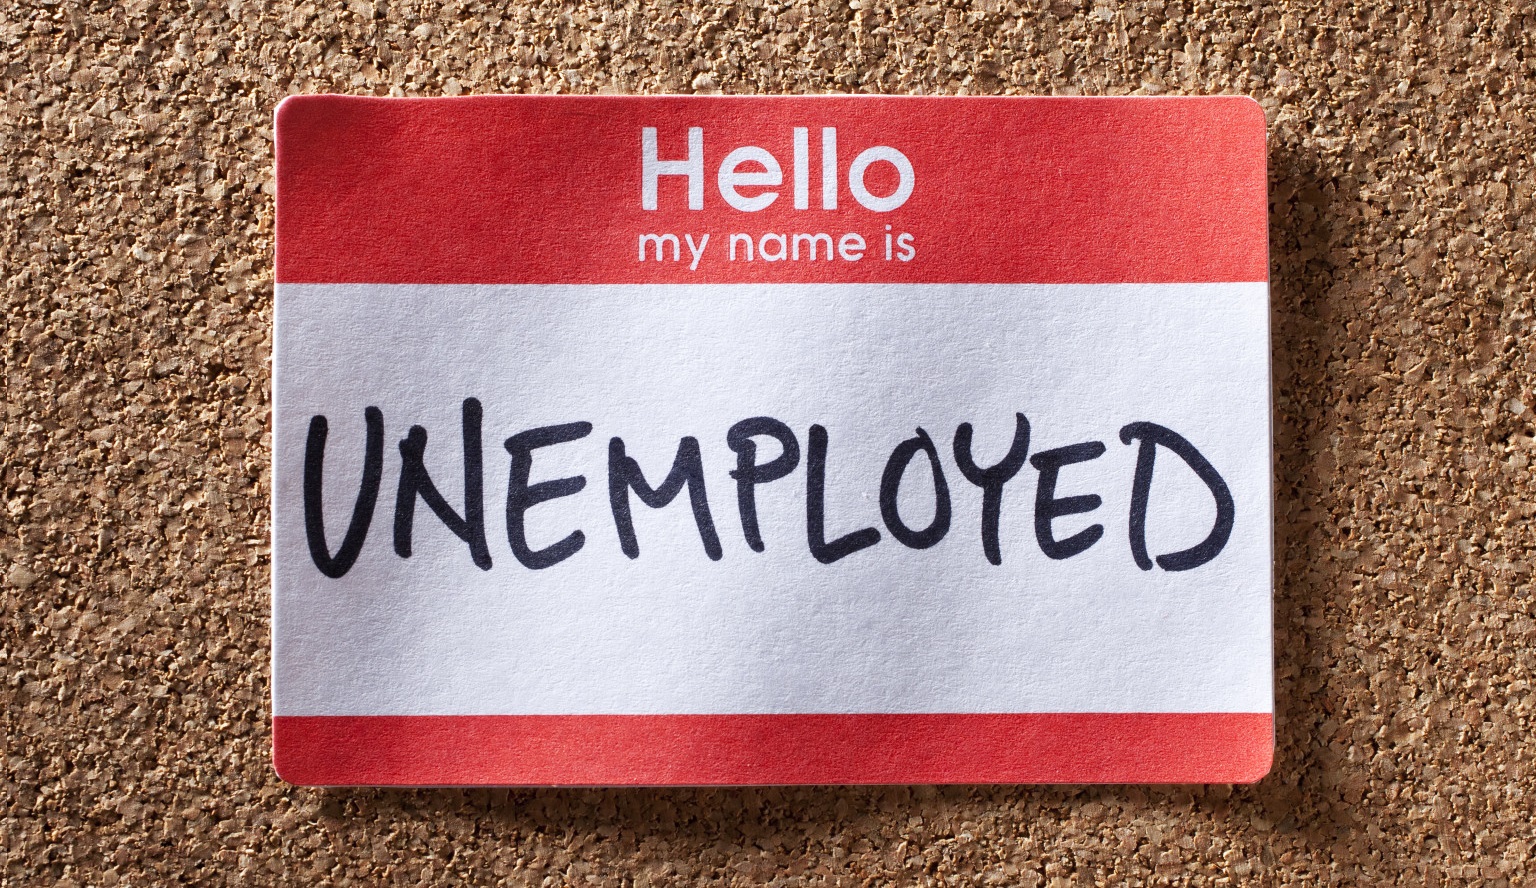 Hello
my name is
UNEMPLOYED